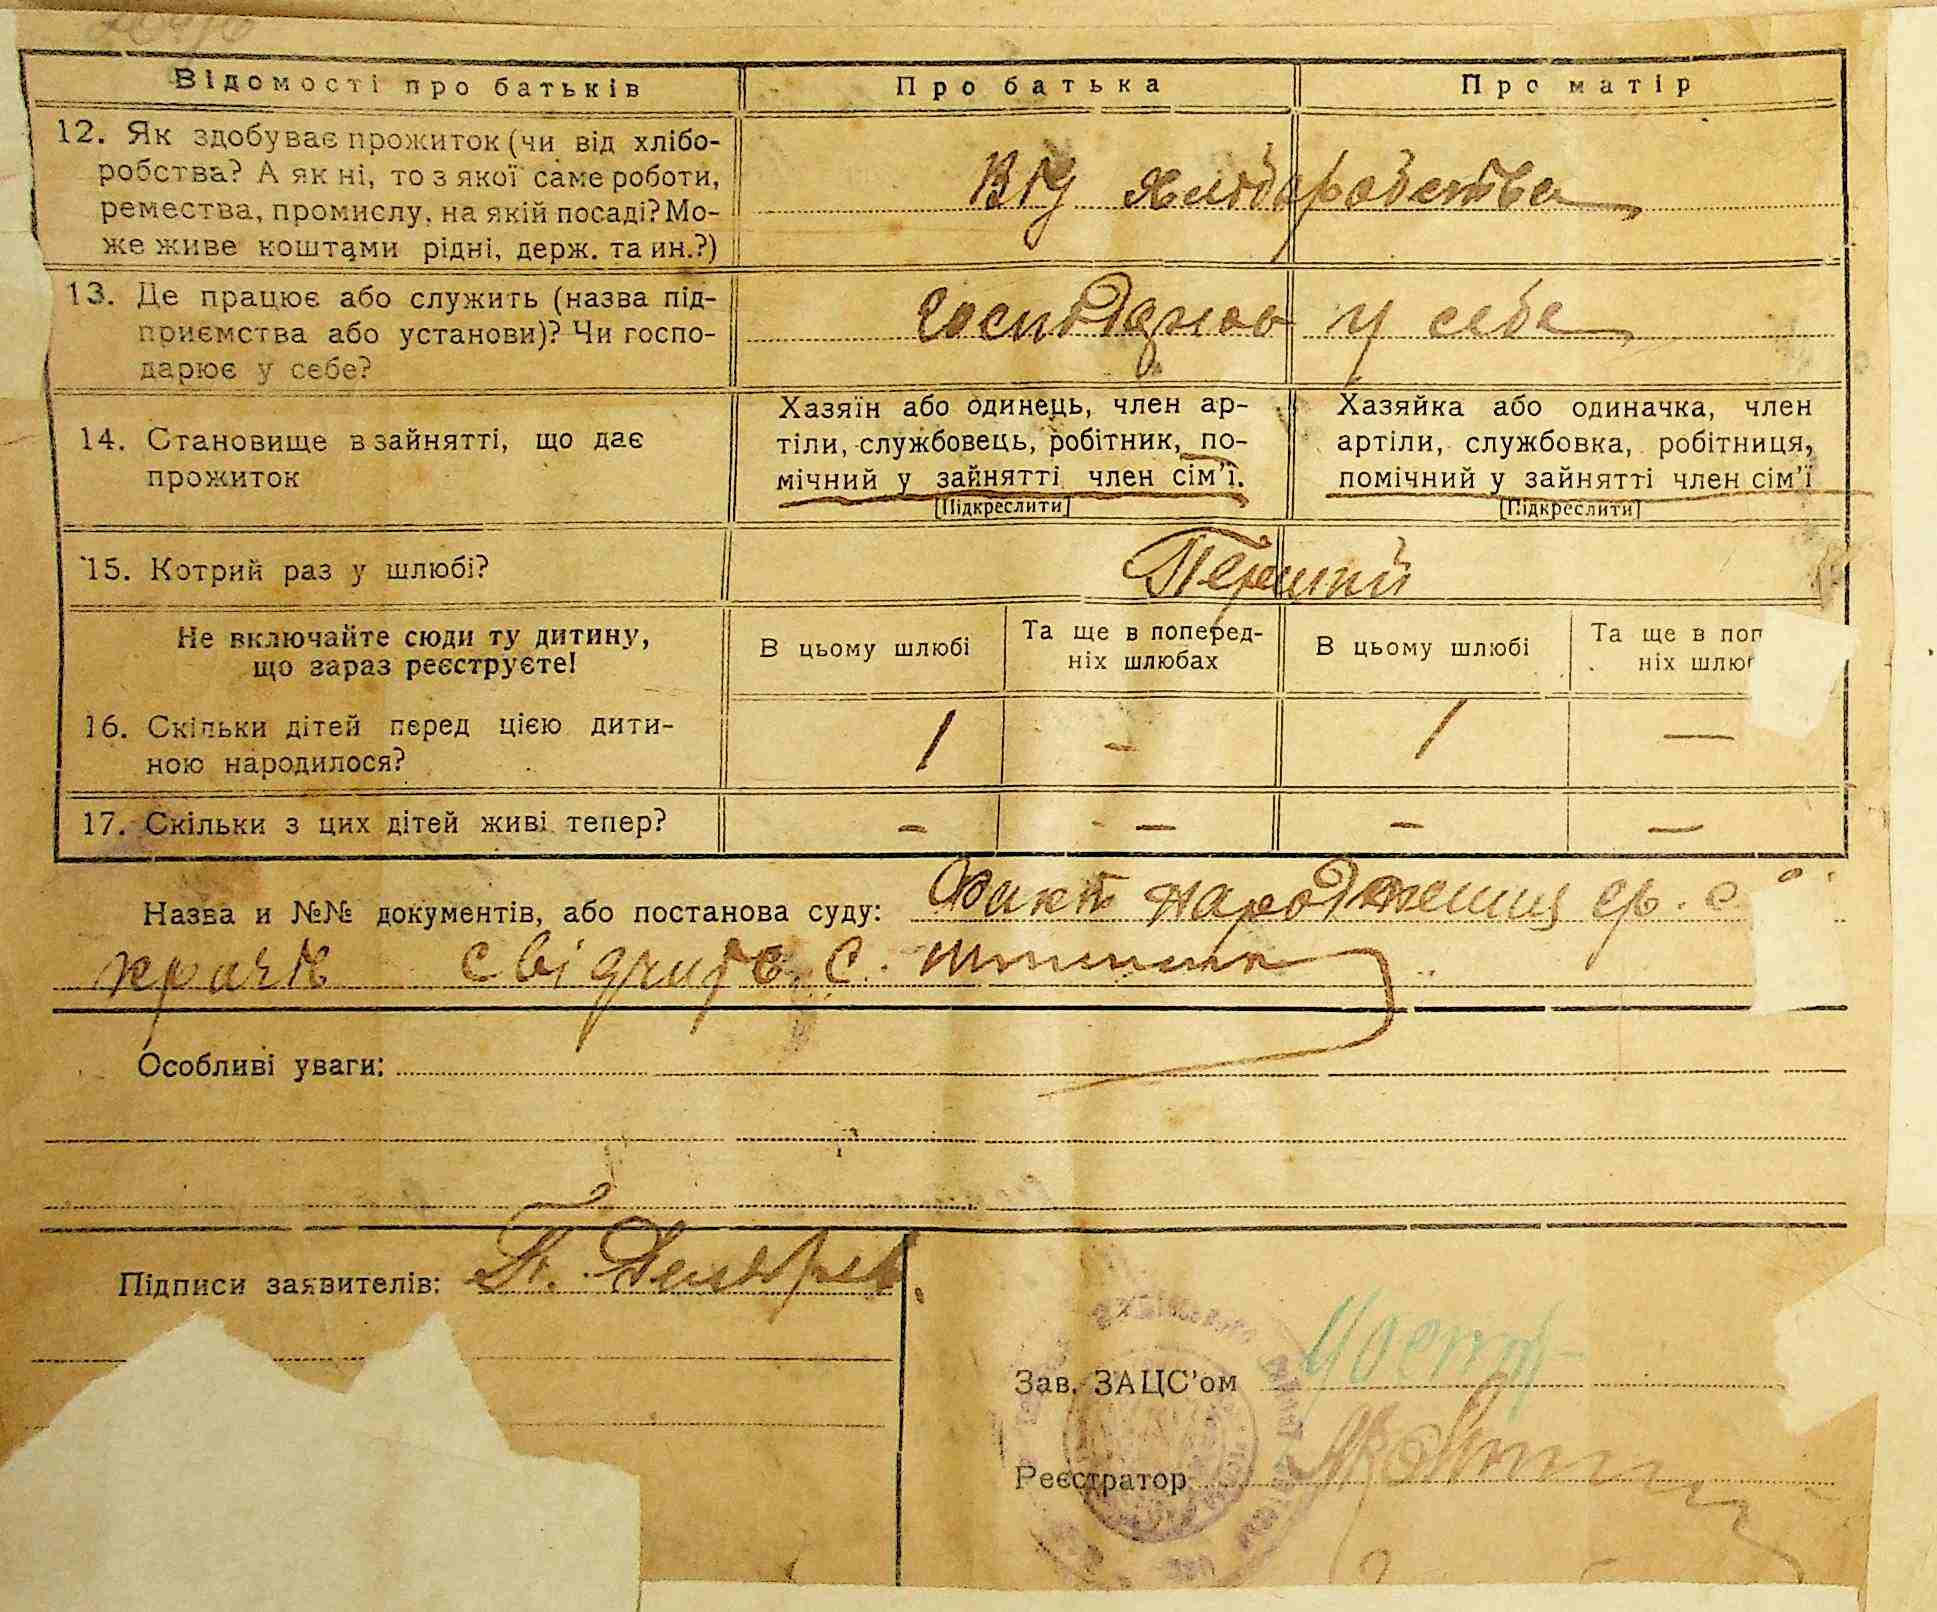 Відомості про батьків
Про батька
Про матір
12. Як здобуває прожиток (чи від хлібо-
робства? А як ні, то з якої саме роботи,
ремества, промислу, на якій посаді? Мо-
же живе коштами рідні, держ. та ин.?)
Від хліборобства
13. Де працює або служить (назва під-
приємства або установи)? Чи госпо-
дарює у себе?
у себе
14. Становище в зайнятті, що дає
прожиток
Хазяїн або одинець, член ар-
тіли, службовець, робітник, по-
мічний у зайнятті член сім'ї.
[Підкреслити]
Хазяйка або одиначка, член
артіли, службовка, робітниця,
помічний у зайнятті член сім'ї
[Підкреслити]
15. Котрий раз у шлюбі?
Перший
Не включайте сюди ту дитину,
що зараз реєструєте!
В цьому шлюбі
Та ще в поперед-
ніх шлюбах
В цьому шлюбі
Та ще в поп
ніх шлю
16. Скільки дітей перед цією дити-
ною народилося?
1
-
1
—
17. Скільки з цих дітей живі тепер?
-
-
-
—
Назва и №№ документів, або постанова суду: Факт народження
свідчує с.
Особливі уваги:
Підписи заявителів:
Зав. ЗАЦС'ом
Реєстратор